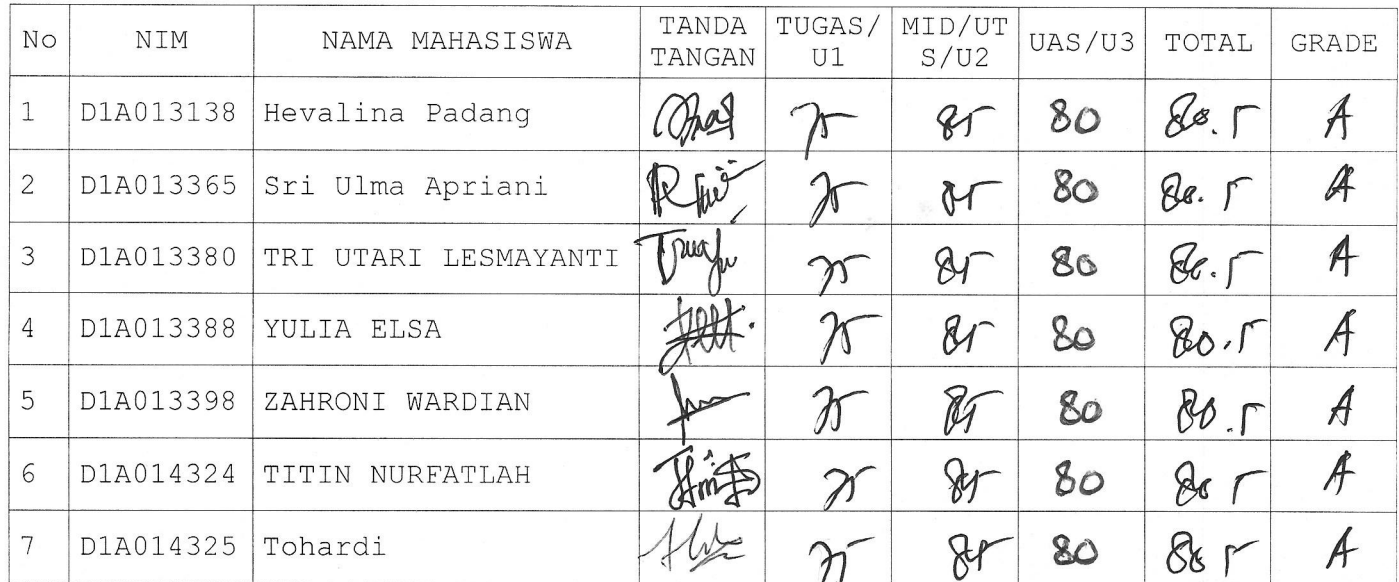 No NIM NAMA MAHASISWA TANDA TANGAN TUGAS/U1 MID/UTS/U2 UAS/U3 TOTAL GRADE
1 D1A013138 Hevalina Padang 75 85 80 80.5 A
2 D1A013365 Sri Ulma Apriani 75 85 80 80.5 A
3 D1A013380 TRI UTARI LESMAYANTI 75 85 80 80.5 A
4 D1A013388 YULIA ELSA 75 85 80 80.5 A
5 D1A013398 ZAHRONI WARDIAN 75 85 80 80.5 A
6 D1A014324 TITIN NURFATLAH 75 85 80 80 5 A
7 D1A014325 Tohardi 75 85 80 80 5 A